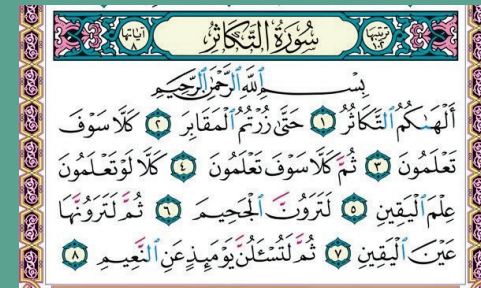 ترتيبها ١٠٢ سُورَةُ التَّكَاثُرِ آياتها ٨
بِسْمِ ٱللَّهِ ٱلرَّحْمَٰنِ ٱلرَّحِيمِ
أَلْهَىٰكُمُ ٱلتَّكَاثُرُ ١ حَتَّىٰ زُرْتُمُ ٱلْمَقَابِرَ ٢ كَلَّا سَوْفَ
تَعْلَمُونَ ٣ ثُمَّ كَلَّا سَوْفَ تَعْلَمُونَ ٤ كَلَّا لَوْ تَعْلَمُونَ
عِلْمَ ٱلْيَقِينِ ٥ لَتَرَوُنَّ ٱلْجَحِيمَ ٦ ثُمَّ لَتَرَوُنَّهَا
عَيْنَ ٱلْيَقِينِ ٧ ثُمَّ لَتُسْـَٔلُنَّ يَوْمَئِذٍ عَنِ ٱلنَّعِيمِ ٨